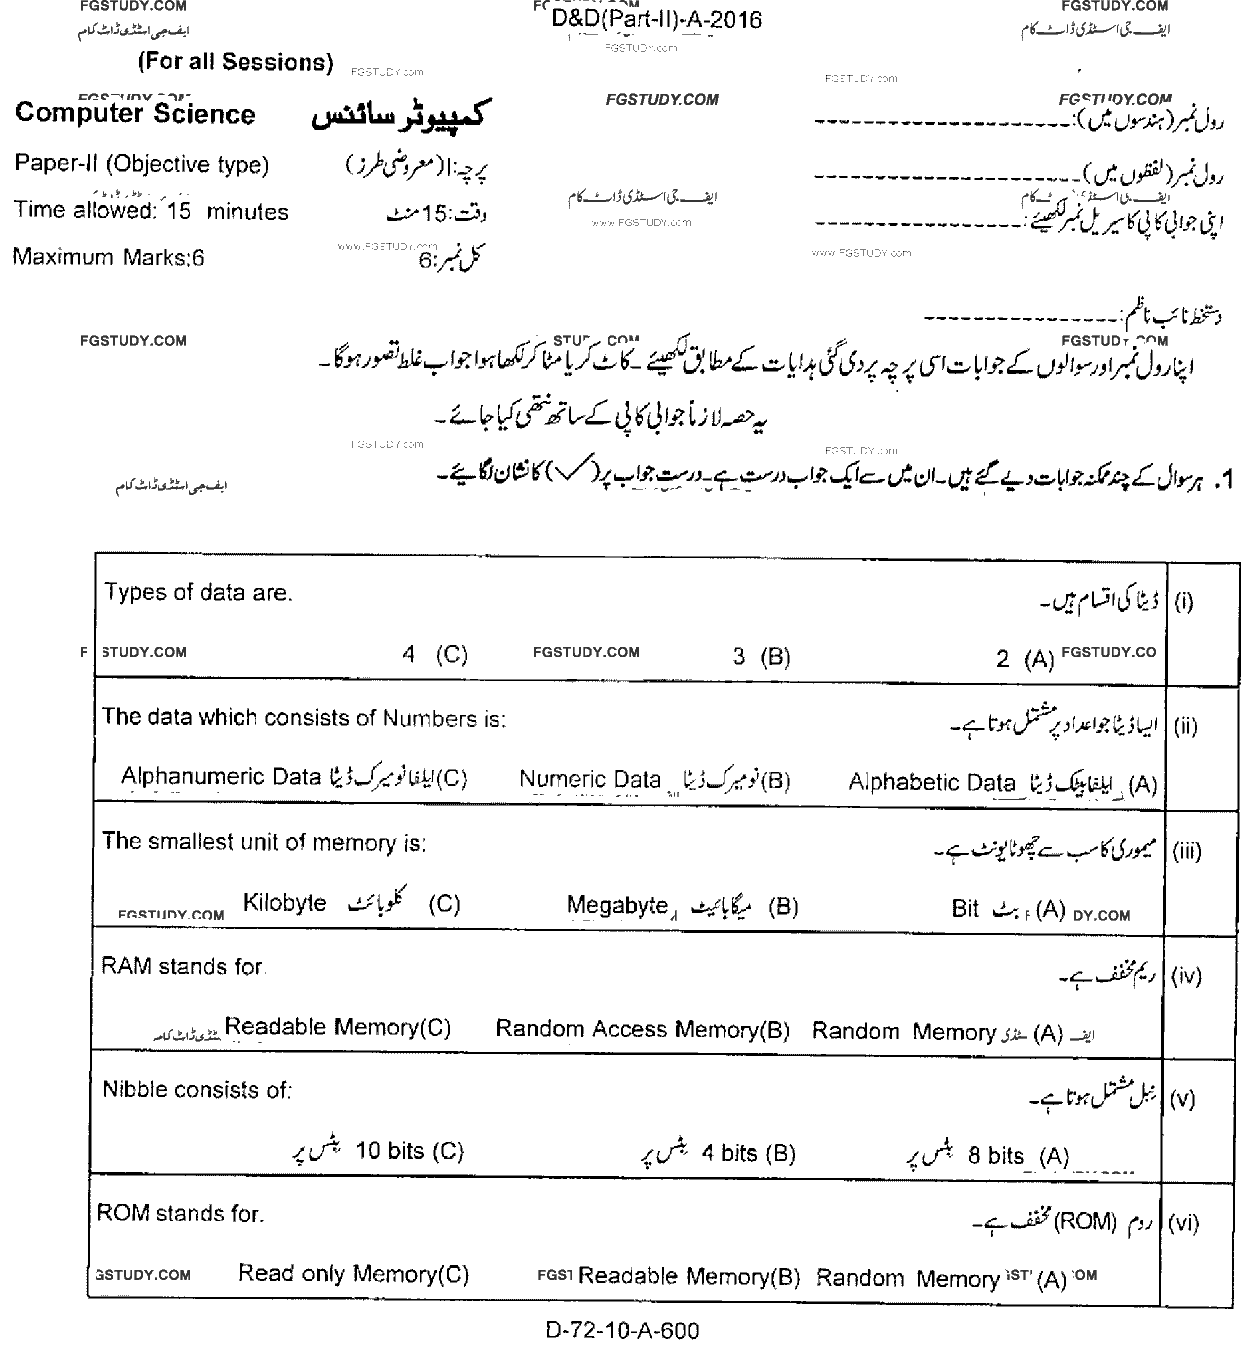 FGSTUDY.COM
ایف جی اسٹڈی ڈاٹ کام
D&D(Part-II)-A-2016
FGSTUDY.com
ایف جی اسٹڈی ڈاٹ کام
(For all Sessions)
FGSTUDY.com
FGSTUDY.com
FGSTUDY.COM
FGSTUDY.COM
FGSTUDY.COM
Computer Science کمپیوٹر سائنس
رول نمبر (ہندسوں میں):
Paper-II (Objective type) پرچہ:I (معروضی طرز)
رول نمبر (لفظوں میں)
Time allowed: 15 minutes وقت:15 منٹ
ایف جی اسٹڈی ڈاٹ کام
www.FGSTUDY.com
اپنی جوابی کاپی کا سیریل نمبر لکھیئے:
Maximum Marks:6 کل نمبر:6
www.FGSTUDY.com
www.FGSTUDY.com
دستخط نائب ناظم:
FGSTUDY.COM
STUDY.COM
FGSTUDY.COM
اپنا رول نمبر اور سوالوں کے جوابات اسی پرچہ پر دی گئی ہدایات کے مطابق لکھیئے ۔ کاٹ کر یا مٹا کر لکھا ہوا جواب غلط تصور ہوگا۔
یہ حصہ لازماً جوابی کاپی کے ساتھ نتھی کیا جائے۔
FGSTUDY.com
FGSTUDY.com
1. ہر سوال کے چند ممکنہ جوابات دیے گئے ہیں۔ ان میں سے ایک جواب درست ہے۔ درست جواب پر (✓) کا نشان لگائیے۔
ایف جی اسٹڈی ڈاٹ کام
Types of data are. ڈیٹا کی اقسام ہیں۔ (i)
FGSTUDY.COM 4 (C) FGSTUDY.COM 3 (B) 2 (A) FGSTUDY.CO
The data which consists of Numbers is: ایسا ڈیٹا جو اعداد پر مشتمل ہوتا ہے۔ (ii)
Alphanumeric Data ایلفا نومیرک ڈیٹا (C) Numeric Data نومیرک ڈیٹا (B) Alphabetic Data ایلفابیٹک ڈیٹا (A)
The smallest unit of memory is: میموری کا سب سے چھوٹا یونٹ ہے۔ (iii)
FGSTUDY.COM Kilobyte کلوبائٹ (C) Megabyte میگا بائیٹ (B) Bit بٹ (A) DY.COM
RAM stands for. ریم مخفف ہے۔ (iv)
Readable Memory(C) Random Access Memory(B) Random Memory (A)
Nibble consists of: نبل مشتمل ہوتا ہے۔ (v)
10 bits بٹس پر (C) 4 bits بٹس پر (B) 8 bits بٹس پر (A)
ROM stands for. روم (ROM) مخفف ہے۔ (vi)
GSTUDY.COM Read only Memory(C) FGST Readable Memory(B) Random Memory (A) OM
D-72-10-A-600